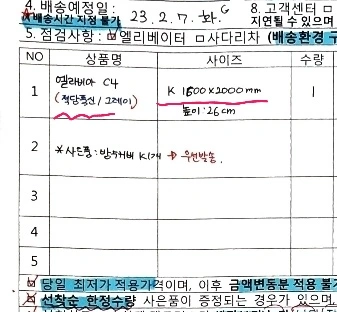 4. 배송예정일: 23. 2. 7. 화 G
8. 고객센터
*배송시간 지정 불가
지연될 수 있으며
5. 점검사항: □엘리베이터 □사다리차 (배송환경 구
NO 상품명 사이즈 수량
1 옐라비아 C4 K 1600×2000mm 1
(적당푹신/그레이) 높이:26cm
2 *사은품: 방수커버 K1개 → 우선발송.
3
4
5
당일 최저가 적용가격이며, 이후 금액변동분 적용 불가
선착순 한정수량 사은품이 증정되는 경우가 있으며,